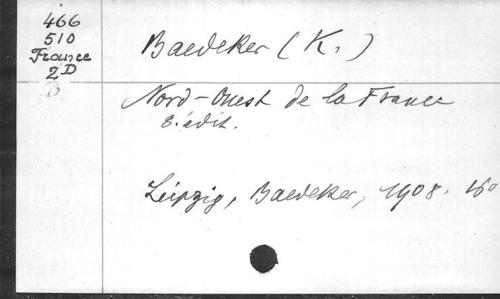 466
510
France
2D
B
Baedeker (K.)
Nord-Ouest de la France
8. édit.
Leipzig, Baedeker, 1908. 16°